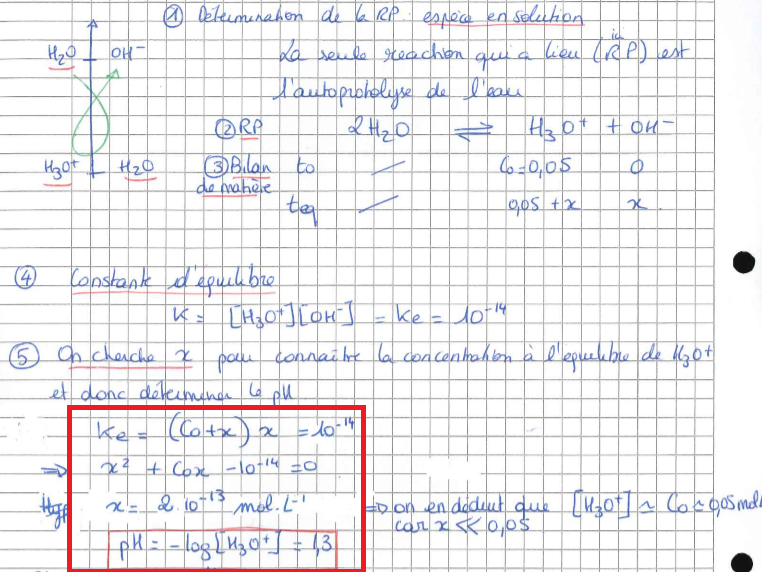 ① Détermination de la RP : espèce en solution
La seule réaction qui a lieu (ici RP) est
l'autoprotolyse de l'eau
H₂O OH⁻
② RP 2H₂O ⇌ H₃O⁺ + OH⁻
H₃O⁺ H₂O
③ Bilan de matière to C₀=0,05 0
teq 0,05 + x x
④ Constante d'équilibre
K = [H₃O⁺][OH⁻] = Ke = 10⁻¹⁴
⑤ On cherche x pour connaître la concentration à l'équilibre de H₃O⁺
et donc déterminer le pH
Ke = (C₀+x) x = 10⁻¹⁴
⇒ x² + C₀x - 10⁻¹⁴ = 0
x = 2.10⁻¹³ mol.L⁻¹ ⇒ on en déduit que [H₃O⁺] ≃ C₀ ≃ 0,05 mol
car x << 0,05
pH = -log[H₃O⁺] = 1,3